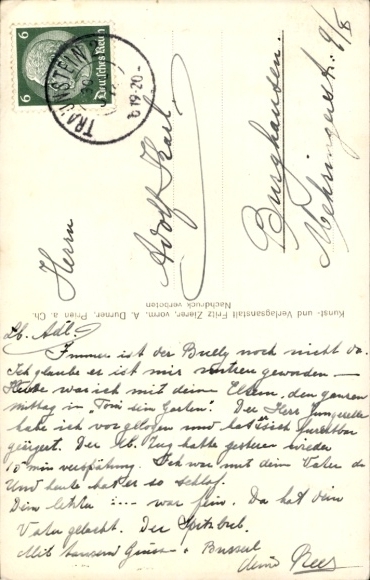 6
6
Deutsches Reich
TRAUNSTEIN
6.19-20-
Herrn
Adolf
Burghausen.
Mehringerstr. 9/8
Kunst- und Verlagsanstalt Fritz Zierer, vorm. A. Durner, Prien a. Ch.
Nachdruck verboten
Lb. Adl.!
Immer ist der Bully noch nicht da.
Ich glaube er ist mir untreu geworden —
Heute war ich mit deinen Eltern, den ganzen
mittag in "Toni sein Garten". Der Herr
habe ich vor gelogen und furchtbar
geärgert. Der Zug hatte gestern wieder
10 min verspätung. Ich war mit dein Vater da
Und heute hat er so schlaf.
Dein letzter i... war fein. Da hat dein
Vater gelacht. Der Spitzbub.
Mit tausend Grüsse + Bussel
deine Resi